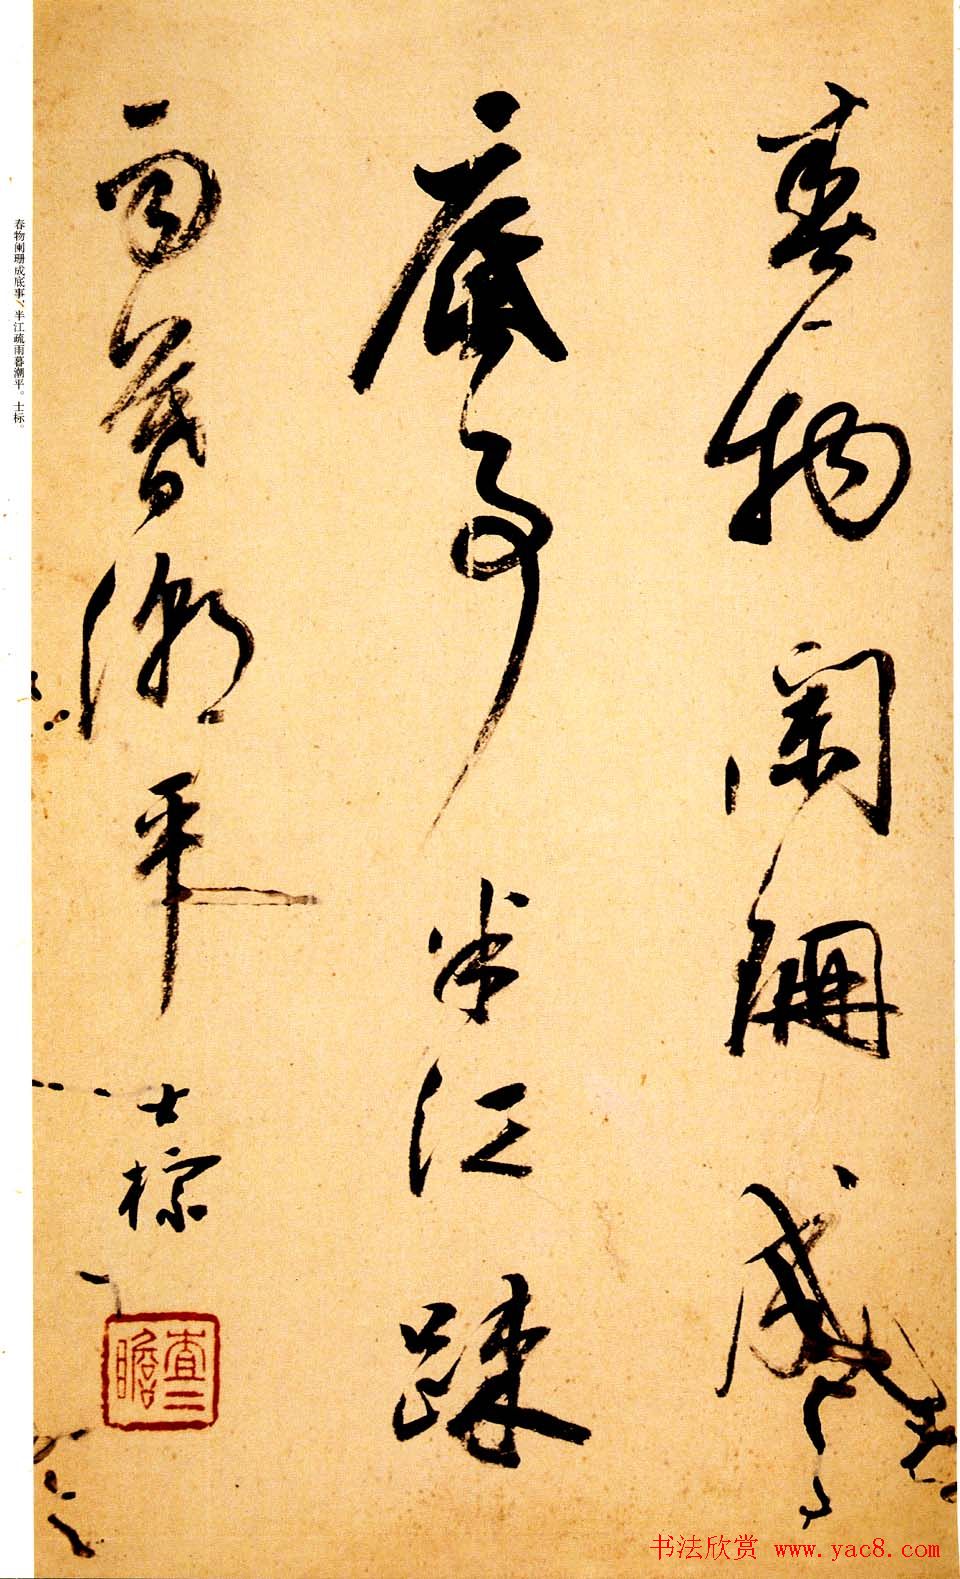 春物闌珊成
底事半江疎
雨暮潮平
士標
查二瞻
春物阑珊成底事、半江疏雨暮潮平。士标。
书法欣赏 www.yac8.com